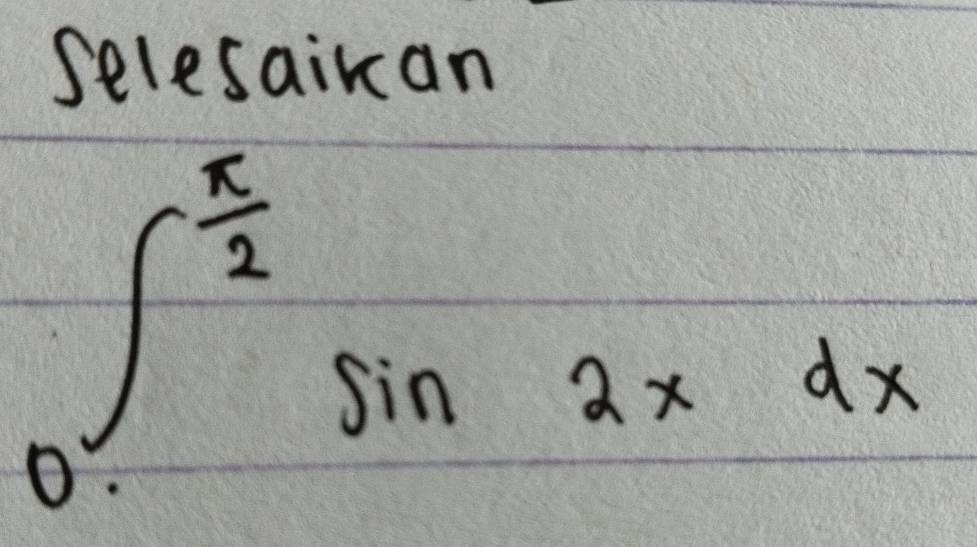 Selesaikan
∫₀^(π/2) sin 2x dx